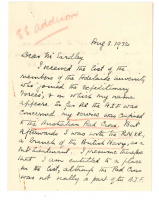 Aug 3. 1936
Dear Mr Cardley
I received the List of the
members of the Adelaide university
who joined the expeditionary
Forces; in which my name
appears. So far as the A.I.F. was
concerned my service was confined
to the Australian Red Cross. But
afterwards I was with the R.N.V.R.
a branch of the British Navy, as a
Lieutenant. I presume therefore
that I am entitled to a place
in the List, although the Red Cross
was not really a part of the A.I.F.